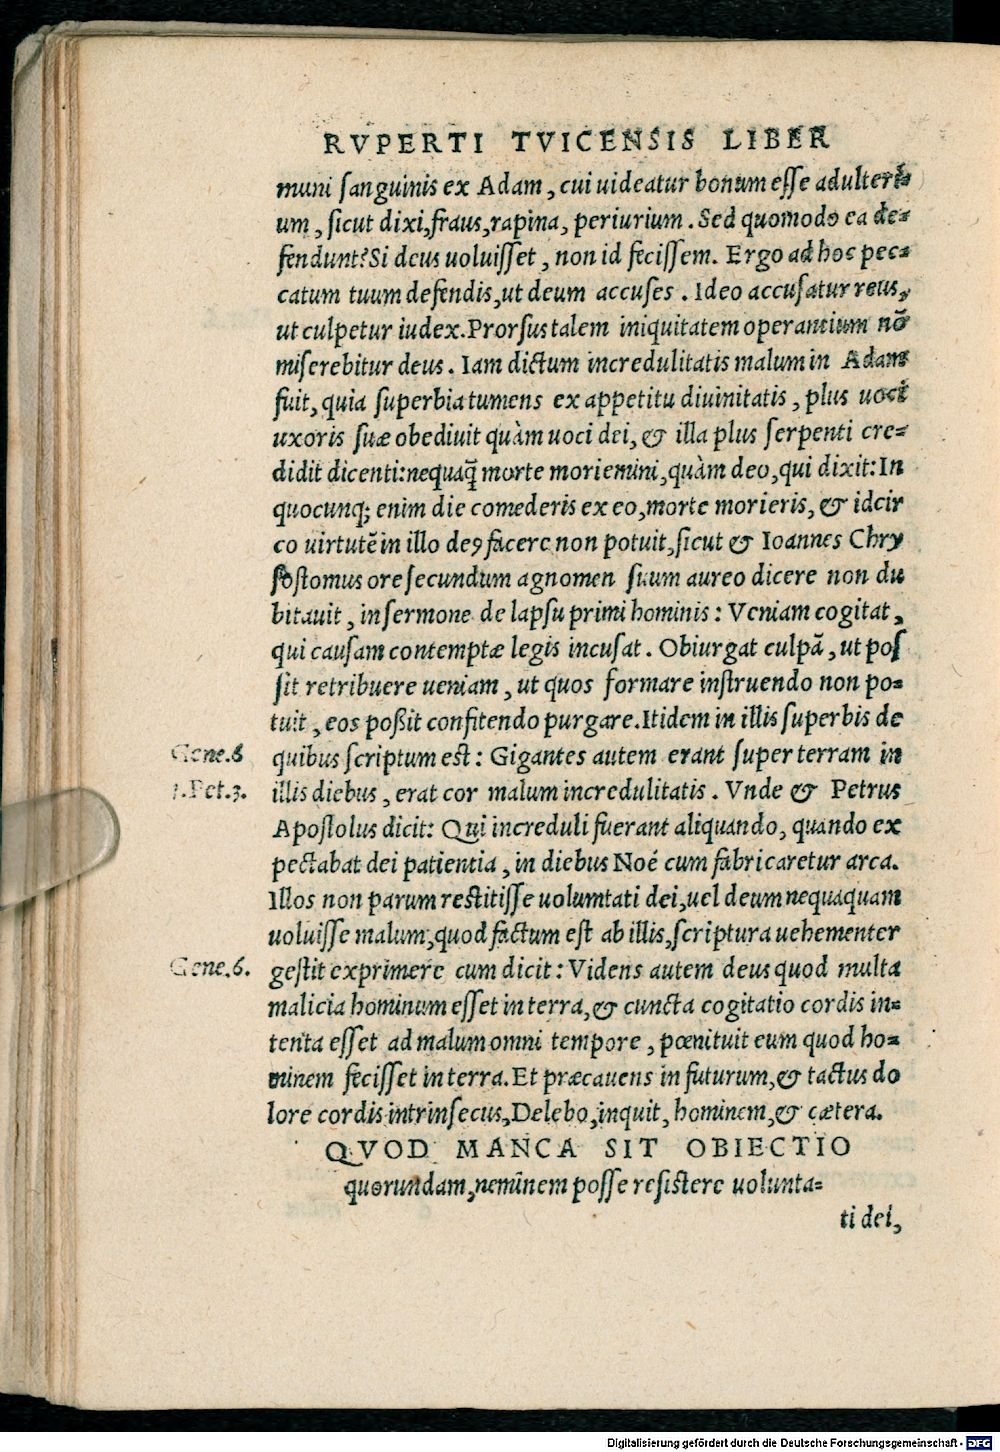 RVPERTI TVICENSIS LIBER
muni sanguinis ex Adam, cui uideatur bonum esse adulteri-
um, sicut dixi, fraus, rapina, periurium. Sed quomodo ea de-
fendunt? Si deus uoluisset, non id fecissem. Ergo ad hoc pec-
catum tuum defendis, ut deum accuses. Ideo accusatur reus,
ut culpetur iudex. Prorsus talem iniquitatem operantium nō
miserebitur deus. Iam dictum incredulitatis malum in Adam
fuit, quia superbia tumens ex appetitu diuinitatis, plus uoci
uxoris suæ obediuit quàm uoci dei, & illa plus serpenti cre-
didit dicenti: nequaq̃ morte moriemini, quàm deo, qui dixit: In
quocunq; enim die comederis ex eo, morte morieris, & idcir
co uirtutē in illo deꝰ facere non potuit, sicut & Ioannes Chry
sostomus ore secundum agnomen suum aureo dicere non du
bitauit, in sermone de lapsu primi hominis: Veniam cogitat,
qui causam contemptæ legis incusat. Obiurgat culpā, ut pos
sit retribuere ueniam, ut quos formare instruendo non po-
tuit, eos poßit confitendo purgare. Itidem in illis superbis de
Gene.6 quibus scriptum est: Gigantes autem erant super terram in
1.Pet.3. illis diebus, erat cor malum incredulitatis. Vnde & Petrus
Apostolus dicit: Qui increduli fuerant aliquando, quando ex
pectabat dei patientia, in diebus Noé cum fabricaretur arca.
Illos non parum restitisse uoluntati dei, uel deum nequaquam
uoluisse malum, quod factum est ab illis, scriptura uehementer
Gene.6. gestit exprimere cum dicit: Videns autem deus quod multa
malicia hominum esset in terra, & cuncta cogitatio cordis in-
tenta esset ad malum omni tempore, pœnituit eum quod ho-
minem fecisset in terra. Et præcauens in futurum, & tactus do
lore cordis intrinsecus, Delebo, inquit, hominem, & cætera.
QVOD MANCA SIT OBIECTIO
quorundam, neminem posse resistere uolunta-
ti dei,
Digitalisierung gefördert durch die Deutsche Forschungsgemeinschaft - DFG